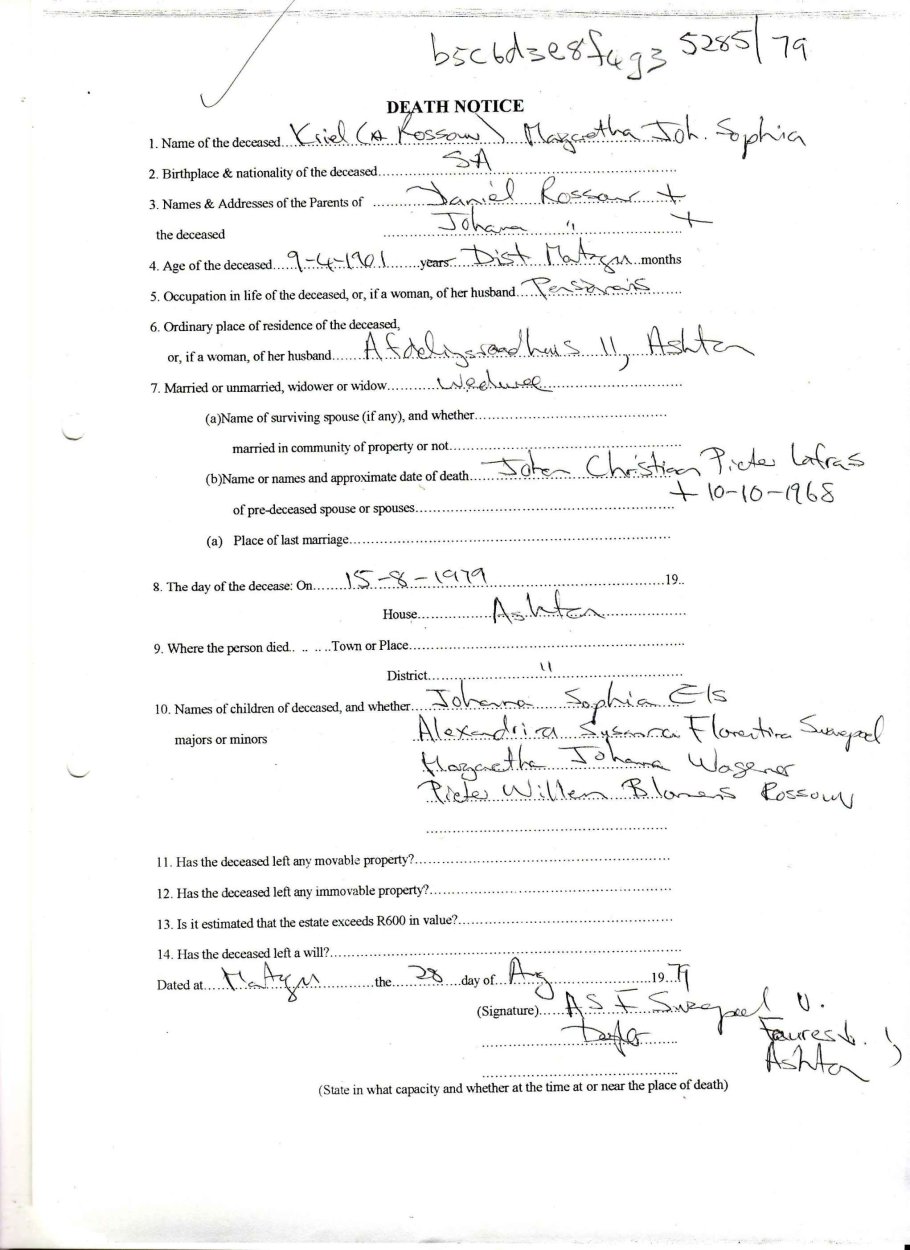 b5c6d3e8f4g3 5285/79
DEATH NOTICE
1. Name of the deceased Kriel (* Rossouw) Margaretha Joh. Sophia
2. Birthplace & nationality of the deceased SA
3. Names & Addresses of the Parents of Daniel Rossouw +
the deceased Johana " +
4. Age of the deceased 9-4-1901 years Dist Matzgn months
5. Occupation in life of the deceased, or, if a woman, of her husband
6. Ordinary place of residence of the deceased,
or, if a woman, of her husband 11, Ashton
7. Married or unmarried, widower or widow Weduwee
(a)Name of surviving spouse (if any), and whether
married in community of property or not
(b)Name or names and approximate date of death Johan Christiaan Pieter Lafras
+ 10-10-1968
of pre-deceased spouse or spouses
(a) Place of last marriage
8. The day of the decease: On 15-8-1979 19..
House Ashton
9. Where the person died.. .. .. ..Town or Place
District "
10. Names of children of deceased, and whether Johanna Sophia Els
majors or minors Alexandrina Susanna Florentina Swanepoel
Margaretha Johana Wagener
Pieter Willem Blomerus Rossouw
11. Has the deceased left any movable property?
12. Has the deceased left any immovable property?
13. Is it estimated that the estate exceeds R600 in value?
14. Has the deceased left a will?
Dated at the 28 day of Aug 1979
(Signature) A S F Swanepoel
Ashton
(State in what capacity and whether at the time at or near the place of death)